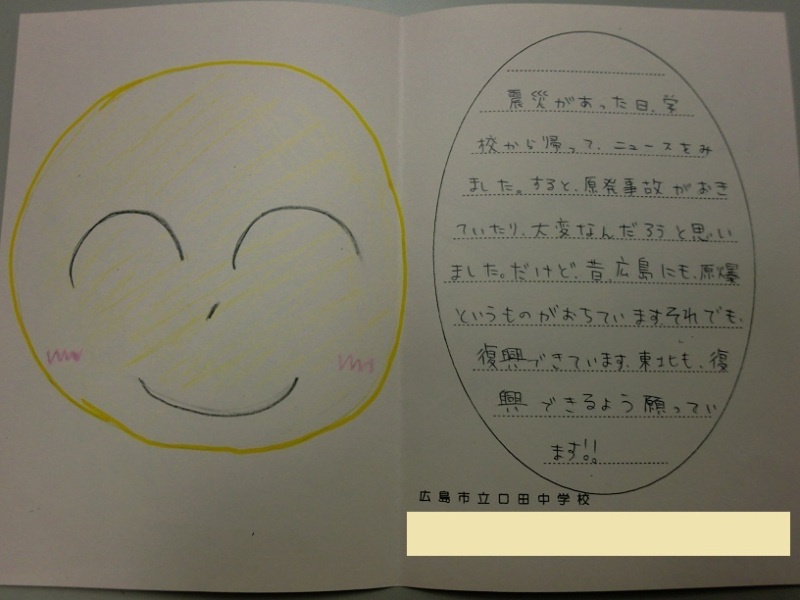 震災があった日、学
校から帰って、ニュースをみ
ました。すると、原発事故がおき
ていたり、大変なんだろうと思い
ました。だけど、昔、広島にも、原爆
というものがおちています。それでも、
復興できています。東北も、復
興できるよう願ってい
ます!!
広島市立口田中学校